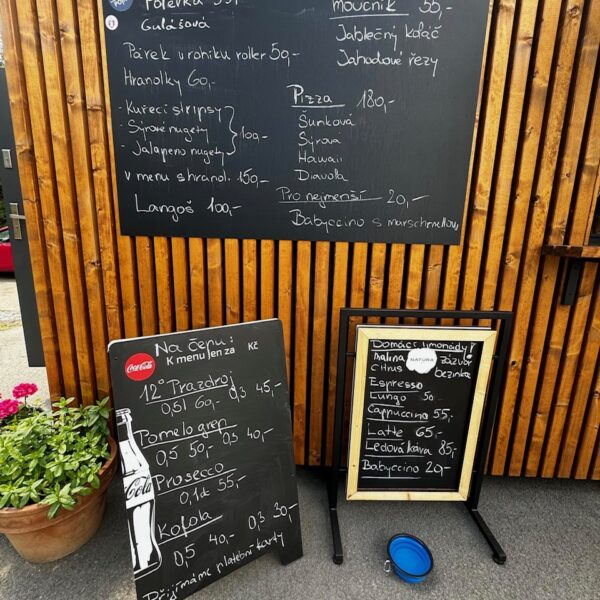 Polévka 55,-
Gulášová
Párek v rohlíku roller 50,-
Hranolky 60,-
- Kuřecí stripsy
- Sýrové nugety
- Jalapeno nugety
100,-
v menu s hranol. 150,-
Langoš 100,-
moučník 55,
Jablečný koláč
Jahodové řezy
Pizza 180,-
Šunková
Sýrová
Hawaii
Diavola
Pro nejmenší 20,-
Babyccino s marschmellow
Na čepu:
K menu jen za Kč
Coca-Cola
12° Prazdroj
0,5l 60,- 0,3 45,-
Pomelo grep
0,5 50,- 0,3 40,-
Prosecco
0,1d 55,-
Kofola
0,5 40,- 0,3 30,-
Přijímáme platební karty
Coca-Cola
Domácí limonády!
Malina zázvor
Citrus bezinka
NATURA
Espresso
Lungo 50
Cappuccino 55,-
Latte 65,-
Ledová káva 85,-
Babyccino 20,-